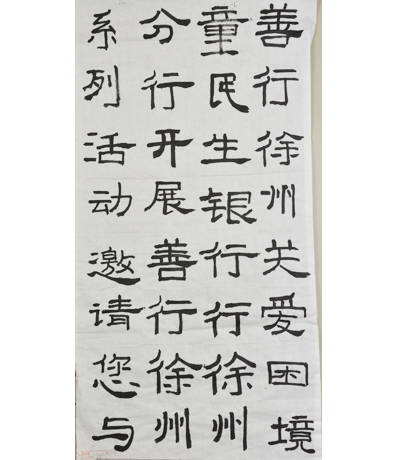 善行徐州关爱困境
童民生银行行徐州
分行开展善行徐州
系列活动邀请您与